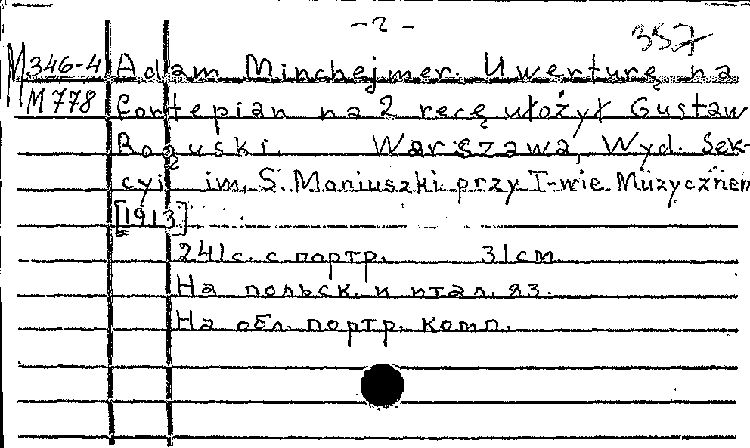 - 2 -
357
M 346-4 Adam Minchejmer. Uwerturę na
M 778 fortepian na 2 ręcę ułożył Gustaw
Roguski. Warszawa, Wyd. Sek-
cyi im. S. Moniuszki przy T-wie Muzycznem
[1913]
241 с. с портр. 31 см.
На польск. и итал. яз.
На обл. портр. комп.